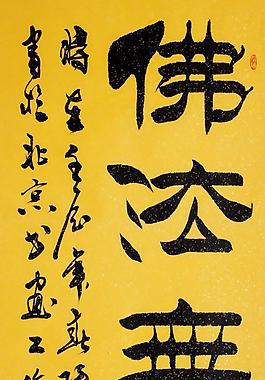 佛法無
時在壬辰年春陽
書於北京書画工作